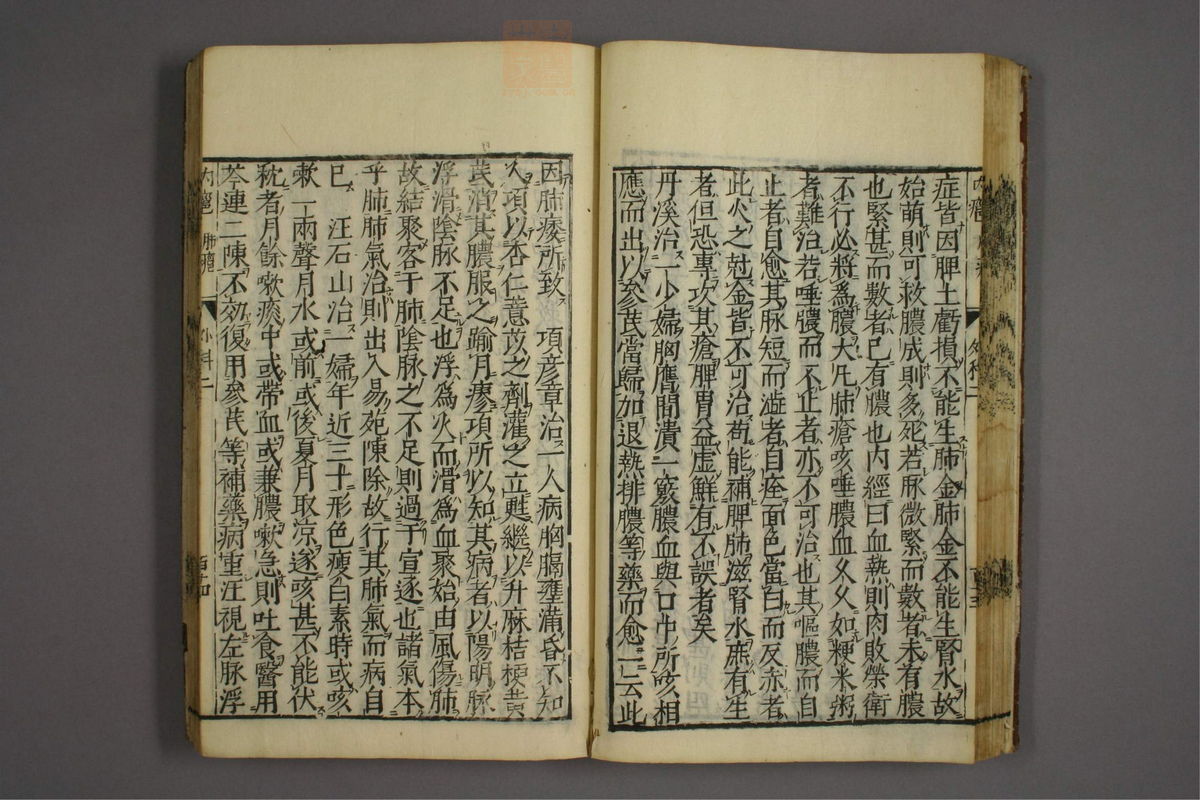 症皆因脾土虧損不能生肺金肺金不能生腎水故
始萌則可救膿成則多死若脉微緊而數者未有膿
也緊甚而數者已有膿也内經曰血熱則肉敗榮衛
不行必將爲膿大凢肺瘡咳唾膿血久久如粳米粥
者難治若唾膿而不止者亦不可治也其嘔膿而自
止者自愈其脉短而澁者自痊面色當白而反赤者
此火之尅金皆不可治苟能補脾肺滋腎水庶有生
者但恐專攻其瘡脾胃益虚鮮有不誤者矣
丹溪治一少婦胸膺間潰一竅膿血與口中所咳相
應而出以參芪當歸加退熱排膿等藥而愈一云此
因肺痿所致　項彦章治一人病胸膈壅滿昏不知
人項以杏仁薏苡之劑灌之立甦繼以升麻桔梗黄
芪消其膿服之踰月瘳項所以知其病者以陽明脉
浮滑陰脉不足也浮爲火而滑爲血聚始由風傷肺
故結聚客于肺陰脉之不足則過于宣逐也諸氣本
乎肺肺氣治則出入易菀陳除故行其肺氣而病自
已　汪石山治一婦年近三十形色瘦白素時或咳
嗽一兩聲月水或前或後夏月取凉遂咳甚不能伏
枕者月餘嗽痰中或帶血或兼膿嗽急則吐食醫用
芩連二陳不効復用參芪等補藥病重汪視左脉浮
内癰　肺癰　外科二